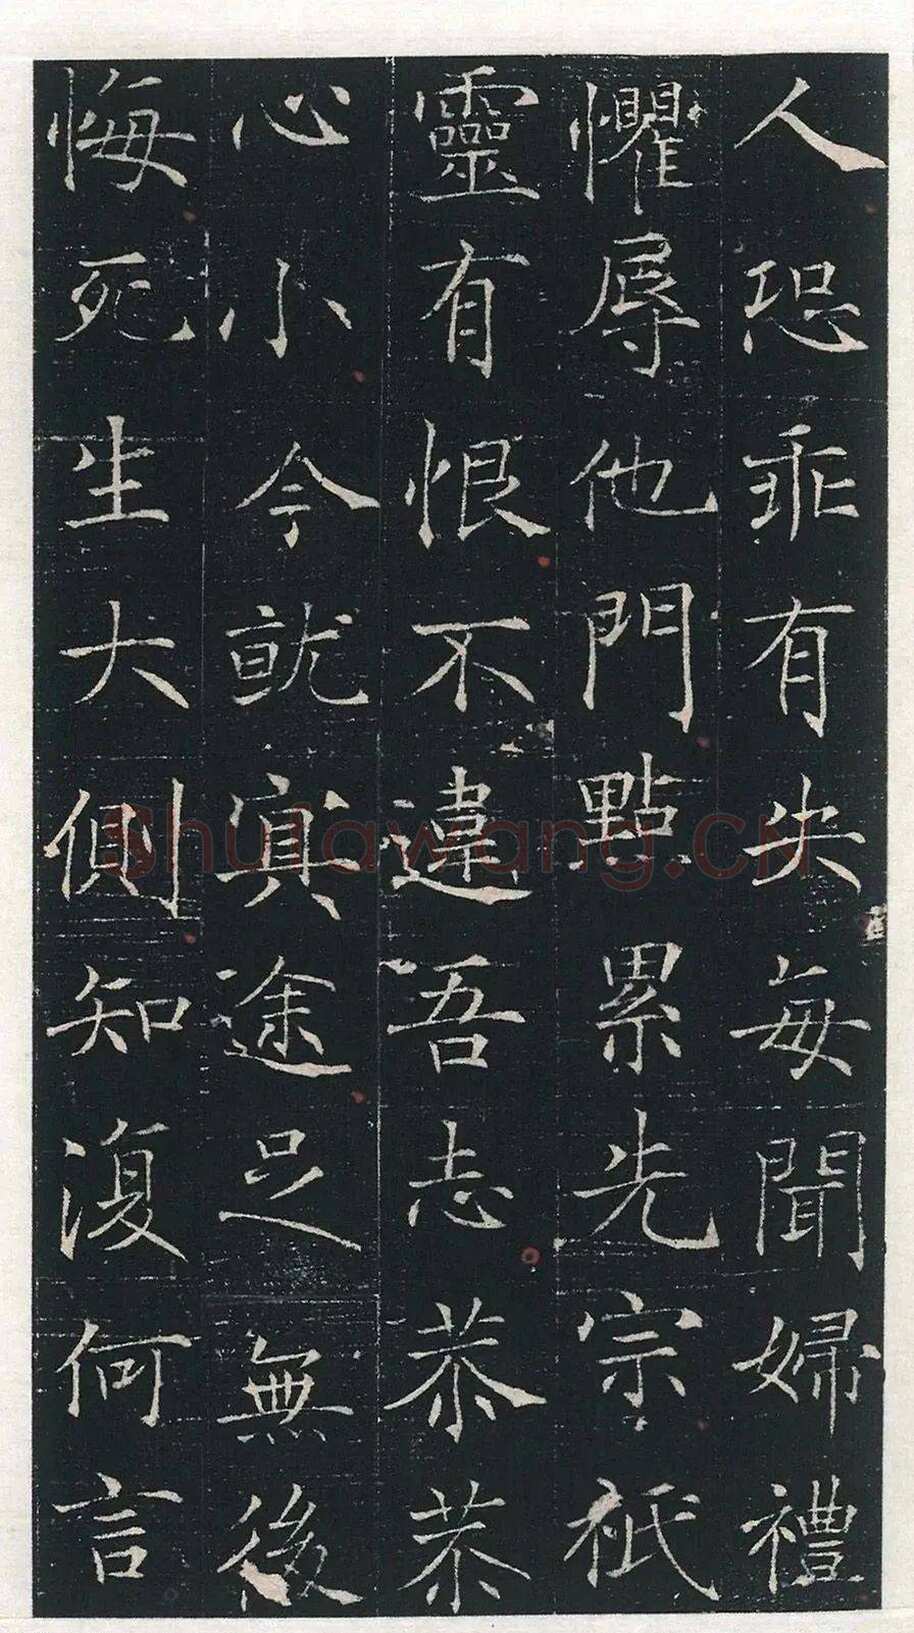 人恐乖有失每聞婦禮
懼辱他門點累先宗祇
靈有恨不違吾志恭恭
心小今就冥途足無後
悔死生大側知復何言
Shufawang.CN